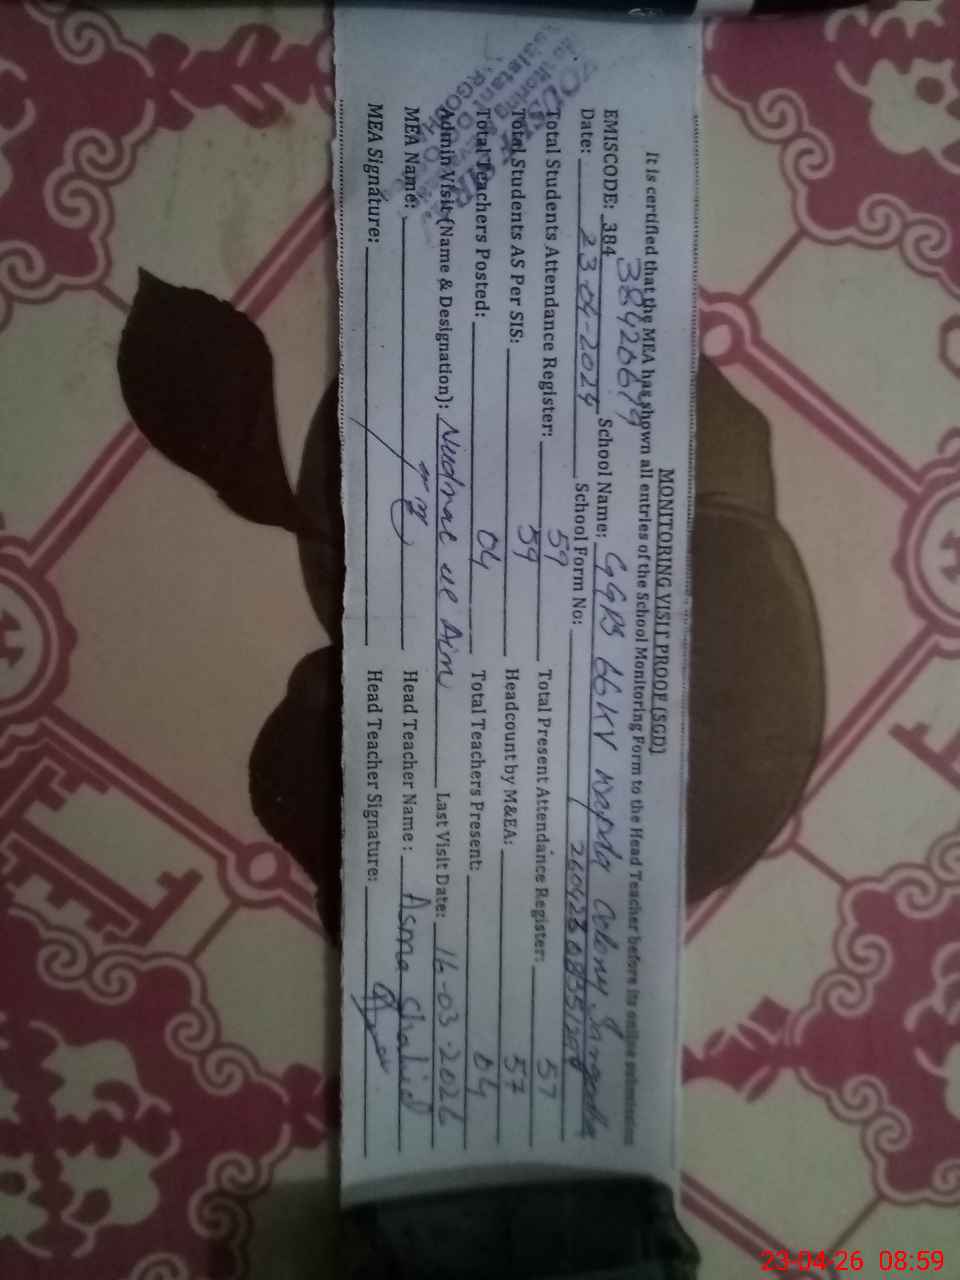 MONITORING VISIT PROOF (SGD)
It is certified that the MEA has shown all entries of the School Monitoring Form to the Head Teacher before its online submission
38426679
EMISCODE: 384 School Name: GGPS 66KV Wapda Colony Sargodha
Date: 23-04-2024 School Form No:
Total Students Attendance Register: 59 Total Present Attendance Register: 57
Total Students AS Per SIS: 59 Headcount by M&EA: 57
Total Teachers Posted: 04 Total Teachers Present: 04
Admin Visit (Name & Designation): ul Ain Last Visit Date: 16-03-2026
MEA Name: Head Teacher Name: Asma Shahid
MEA Signature: Head Teacher Signature:
23-04-26 08:59